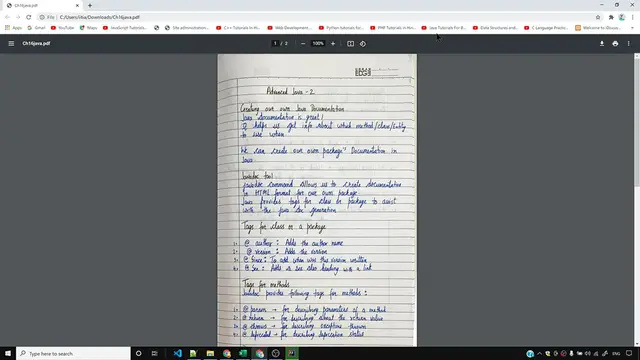 Ch16java.pdf
File | C:/Users/Ulva/Downloads/Ch16java.pdf
C++ Tutorials In H...
Web Development...
Python Tutorials for...
PHP Tutorials In Hi...
Java Tutorials For B...
Data Structures and...
C Language Practic...
Welcome to iStudio...
Ch16java.pdf
1 / 2
100%
Advanced Java - 2
Creating our own Java Documentation
Java documentation is great!
It helps us get info about which method/class/Entity
to use when
We can create our own package" Documentation in
Java.
Javadoc tool
Javadoc command allows us to create documentation
in HTML format for our own package
Java provides tags for class or package to assist
with the java doc generation
Tags for class or a package
1. @ author : Adds the author name
2. @ version : Adds the version
3. @ Since : To add when was this version written
4. @ See : Adds a see also heading with a link
Tags for methods
Javadoc provides following tags for methods :
1. @ param → for describing parameters of a method
2. @ return → for describing about the return value
3. @ throws → for describing exceptions thrown
4. @ deprecated → for describing deprecation status
Type here to search
ENG